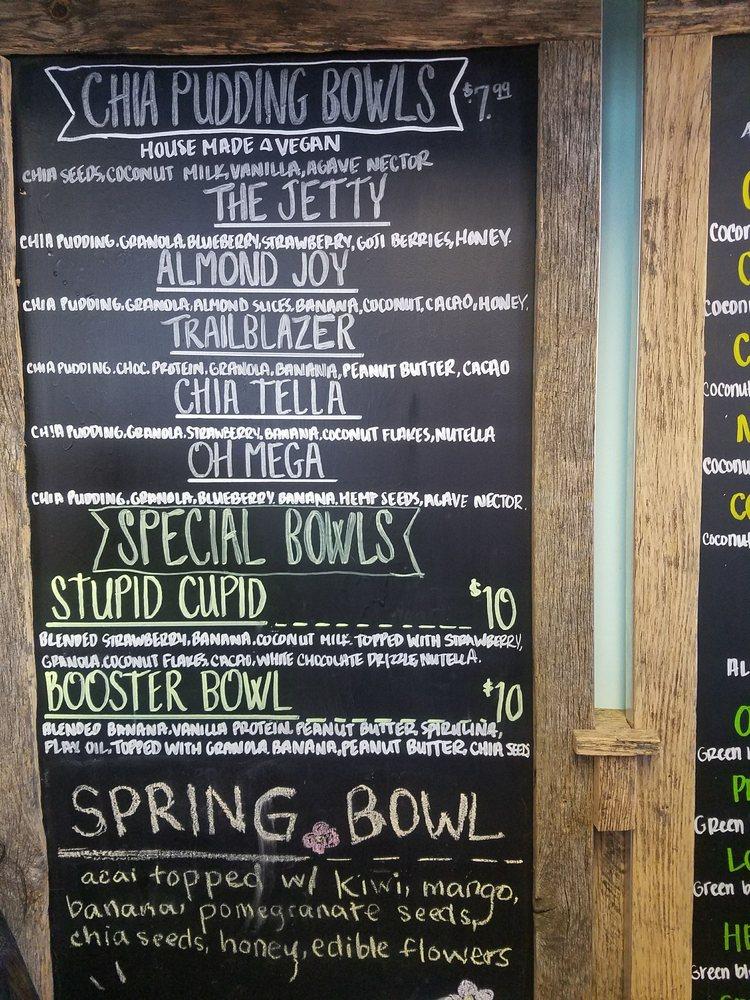 CHIA PUDDING BOWLS $7.99
HOUSE MADE & VEGAN
CHIA SEEDS, COCONUT MILK, VANILLA, AGAVE NECTOR
THE JETTY
CHIA PUDDING, GRANOLA, BLUEBERRY, STRAWBERRY, GOJI BERRIES, HONEY.
ALMOND JOY
CHIA PUDDING, GRANOLA, ALMOND SLICES, BANANA, COCONUT, CACAO, HONEY.
TRAILBLAZER
CHIA PUDDING, CHOC. PROTEIN, GRANOLA, BANANA, PEANUT BUTTER, CACAO
CHIA TELLA
CHIA PUDDING, GRANOLA, STRAWBERRY, BANANA, COCONUT FLAKES, NUTELLA
OH MEGA
CHIA PUDDING, GRANOLA, BLUEBERRY, BANANA, HEMP SEEDS, AGAVE NECTOR.
SPECIAL BOWLS
STUPID CUPID $10
BLENDED STRAWBERRY, BANANA, COCONUT MILK TOPPED WITH STRAWBERRY,
GRANOLA, COCONUT FLAKES, CACAO, WHITE CHOCOLATE DRIZZLE, NUTELLA.
BOOSTER BOWL $10
BLENDED BANANA, VANILLA PROTEIN, PEANUT BUTTER, SPIRULINA,
FLAX OIL, TOPPED WITH GRANOLA, BANANA, PEANUT BUTTER, CHIA SEEDS
SPRING BOWL
acai topped w/ kiwi, mango,
banana, pomegranate seeds,
chia seeds, honey, edible flowers
Green
Green
Green
Green